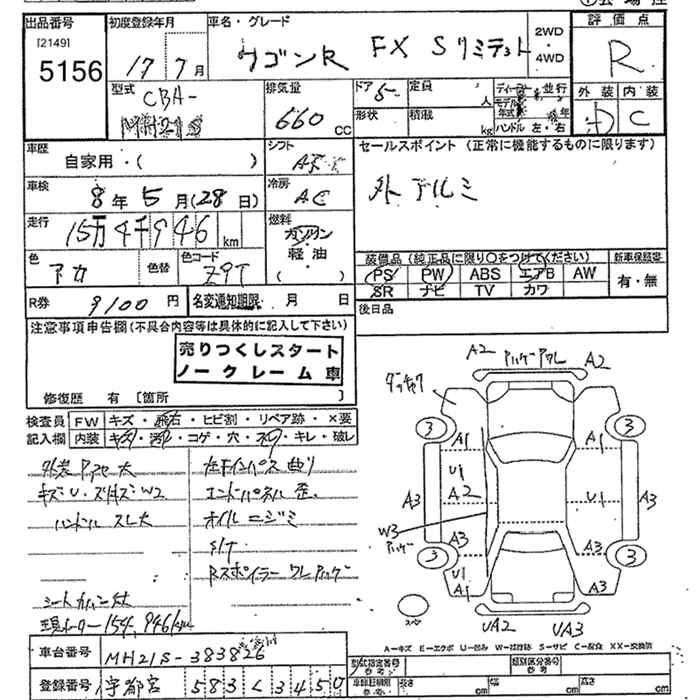 出品番号
[2149]
5156
初度登録年月
17 7月
車名・グレード
ワゴンR FX Sリミテッド
2WD
・
4WD
評価点
R
型式
CBA-
排気量
660 cc
ドア 5
定員 人
形状
積載 kg
ディーラー 並行
モデル
年式 年
ハンドル 左・右
外装
内装
C
車歴
自家用・( )
シフト
冷房
AC
セールスポイント (正常に機能するものに限ります)
外 アルミ
車検
8年 5月(28日)
走行
15万4千946km
燃料
ガソリン
・
軽油
( )
色
アカ
色替
色コード
Z9T
装備品 (純正品に限り○をつけてください)
新車保証書
PS PW ABS エアB AW
SR ナビ TV カワ
有・無
R券 9100円
名変通知期限 月 日
後日品
注意事項申告欄(不具合内容等は具体的に記入して下さい)
売りつくしスタート
ノークレーム車
修復歴 有 [箇所 ]
検査員
記入欄
FW キズ・飛石・ヒビ割・リペア跡・×要
内装 キズ・汚れ・コゲ・穴・スレ・キレ・破レ
外装 アセ 大
キズU・ズリキズW2
ハンドル スレ大
左Fインパネ 曲り
エンドパネル 歪
オイルニジミ
S/T
Rスポイラー ワレ ハゲ
シートカバー
現メーター 154,946km
A2 ハゲ ワレ A2
3 3
A1 A1
U1
A2 U1
A3 A3
W3
ハゲ
A3 A3
3 3
U1
A1 A3
スペア
UA2 UA3
A-キズ E-エクボ U-凹み W-波打跡 S-サビ C-腐食 XX-交換済
車台番号
MH21S-383826
型式指定番号
参考
類別区分番号
参考
登録番号
宇都宮 583 く 3450
車庫証明用
参考
長さ cm
幅 cm
高さ cm